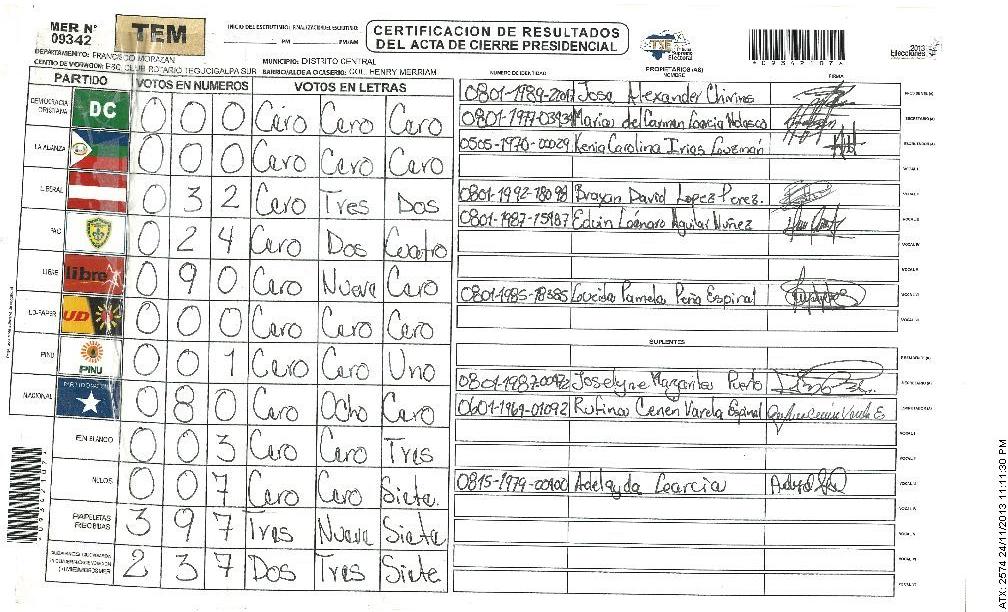 MER Nº 09342
TEM
INICIO DEL ESCRUTINIO: FINALIZACION DEL ESCRUTINIO:
PM PM/AM
CERTIFICACION DE RESULTADOS
DEL ACTA DE CIERRE PRESIDENCIAL
TSE Tribunal Supremo Electoral
*09342107*
2013
Elecciones
DEPARTAMENTO: FRANCISCO MORAZAN
MUNICIPIO: DISTRITO CENTRAL
CENTRO DE VOTACION: ESC. CLUB ROTARIO TEGUCIGALPA SUR
BARRIO/ALDEA O CASERIO: COL. HENRY MERRIAM
PARTIDO VOTOS EN NUMEROS VOTOS EN LETRAS
DEMOCRACIA CRISTIANA DC 0 0 0 Cero Cero Cero
LA ALIANZA 0 0 0 Cero Cero Cero
LIBERAL 0 3 2 Cero Tres Dos
PAC 0 2 4 Cero Dos Cuatro
LIBRE libre 0 9 0 Cero Nueve Cero
UD-FAPER UD 0 0 0 Cero Cero Cero
PINU PINU 0 0 1 Cero Cero Uno
NACIONAL 0 8 0 Cero Ocho Cero
EN BLANCO 0 0 3 Cero Cero Tres
NULOS 0 0 7 Cero Cero Siete.
PAPELETAS RECIBIDAS 3 9 7 Tres Nueve Siete
2 3 7 Dos Tres Siete
NUMERO DE IDENTIDAD PROPIETARIOS (AS) NOMBRE FIRMA
Jose Alexander Chirinos PRESIDENTE (A)
Maria del Carmen Garcia Velasco SECRETARIO (A)
0505-1970-00029 Kenia Carolina Irias Guzmán ESCRUTADOR (A)
VOCAL I
0801-1992-18098 Brayan David Lopez Perez. VOCAL II
0801-1987-15987 Edwin Leonaro Aguilar Nuñez VOCAL III
VOCAL IV
VOCAL V
0801-1985-18385 Loreida Pamela Peña Espinal VOCAL VI
VOCAL VII
SUPLENTES
PRESIDENTE (A)
Joselyne Margarita Puerto SECRETARIO (A)
0601-1969-01092 Rufino Cenen Varela Espinal ESCRUTADOR (A)
VOCAL I
VOCAL II
0815-1979-00400 Adelayda Garcia VOCAL III
VOCAL IV
VOCAL V
VOCAL VI
VOCAL VII
ATX: 2574 24/11/2013 11:11:30 PM